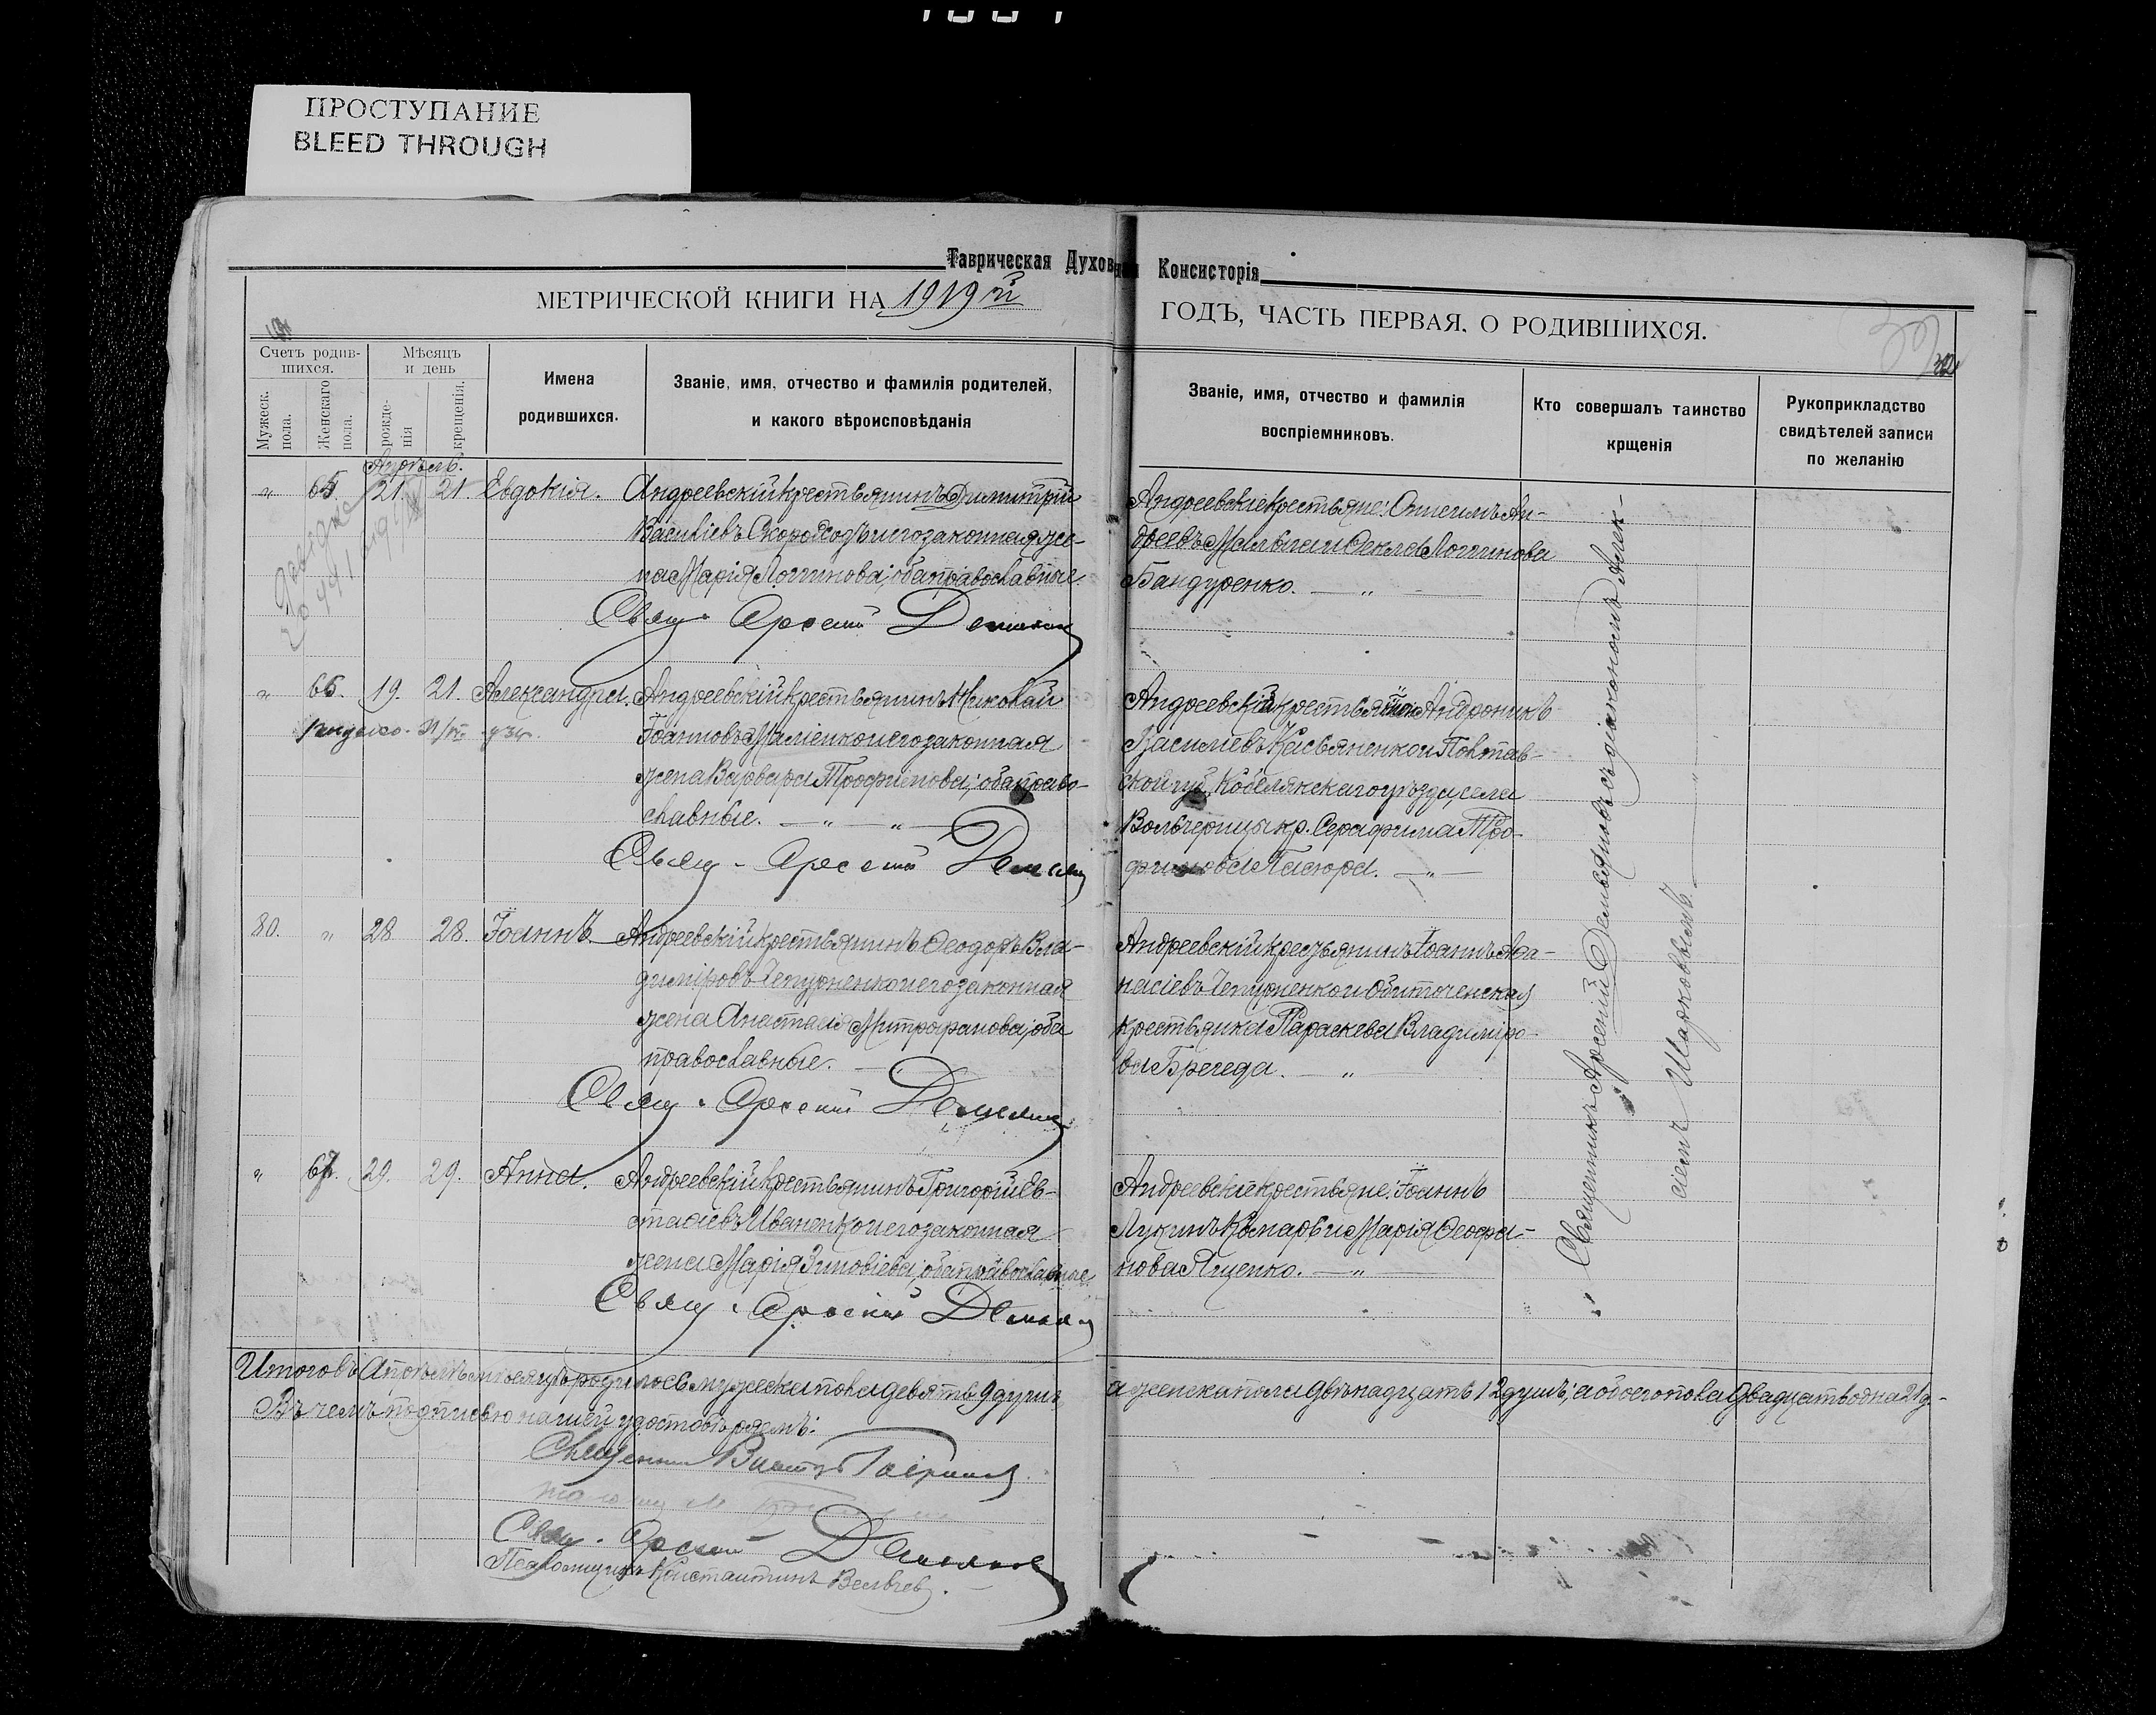 ПРОСТУПАНИЕ
BLEED THROUGH
Таврическая Духовная Консисторія
МЕТРИЧЕСКОЙ КНИГИ НА 1919 й
ГОДЪ, ЧАСТЬ ПЕРВАЯ, О РОДИВШИХСЯ.
Счетъ родив-
шихся.
Мужеск.
пола.
Женскаго
пола.
Мѣсяцъ
и день
рожде-
нія
крещенія.
Имена
родившихся.
Званіе, имя, отчество и фамилія родителей,
и какого вѣроисповѣданія
Званіе, имя, отчество и фамилія
воспріемниковъ.
Кто совершалъ таинство
крщенія
Рукоприкладство
свидѣтелей записи
по желанію
Апрѣль.
" 65. 21. 21. Евдокія. Андреевскій крестьянинъ Димитрій
Василіевъ Скороходъ и его законная же-
на Марія Логгинова; оба православные.
Свящ. Арсеній
Андреевскіе крестьяне: Онисимъ Ан-
дреевъ и Ѳекла Логгинова
Бандуренко. — " —
" 66. 19. 21. Александра. Андреевскій крестьянинъ Николай
Іоанновъ и его законная
жена Варвара Трофимова; оба право-
славные. — " — " —
Свящ. Арсеній
Андреевскій крестьянинъ Андроникъ
Василіевъ Касьяненко и Полтав-
ской губ. Кобелякскаго уѣзда, села
кр. Серафима Тро-
фимова — " —
80. " 28 28. Іоаннъ. Андреевскій крестьянинъ Ѳеодоръ Вла-
диміровъ Чепурненко и его законная
жена Анастасія Митрофанова; оба
православные. — " —
Свящ. Арсеній
Андреевскій крестьянинъ Іоаннъ Аѳа-
насіевъ Чепурненко и Обиточенская
крестьянка Параскева Владиміро-
ва — "
" 67. 29. 29. Анна. Андреевскій крестьянинъ Григорій Ев-
стаѳіевъ Иваненко и его законная
жена Марія Зиновіева; оба православные.
Свящ. Арсеній
Андреевскіе крестьяне: Іоаннъ
Лукинъ Комаръ и Марія Ѳеофа-
нова Яценко. — "
" Священникъ Арсеній съ діакономъ Алек-
сіемъ
Итого въ Апрѣлѣ мѣсяцѣ родилось мужеска пола девять 9 душъ,
а женска пола двѣнадцать 12 душъ; а обоего пола двадцать одна 21 д-
Въ чемъ подписью нашей удостовѣряемъ:
Священникъ
Свящ. Арсеній
Псаломщикъ Константинъ